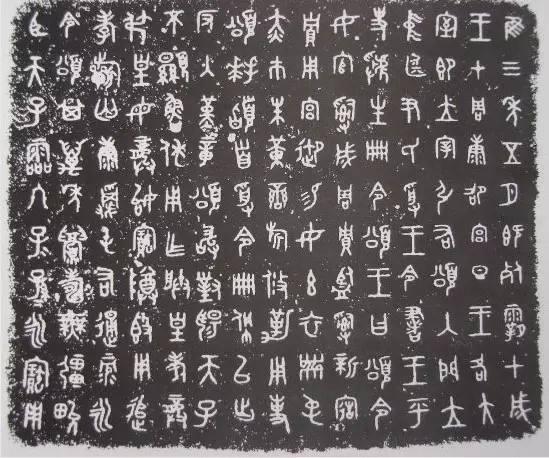 隹三年五月既死霸甲戌
王才周康卲宮旦王各大
室即立宰引右頌入門立
中廷尹氏受王令書王乎
史虢生冊令頌王曰頌令
女官𤔲成周貯監𤔲新造
貯用宮御易女玄衣黹屯
赤巿朱黃䜌旂攸勒用事
頌拜𩒨首受令冊佩以出
反入堇章頌敢對揚天子
不顯魯休用乍朕皇考龏
弔皇母龏姒寶尊𣪘用追
孝祈匄康屯右通彔永
令頌其萬年眉壽無疆畯
臣天子霝冬子孫永寶用